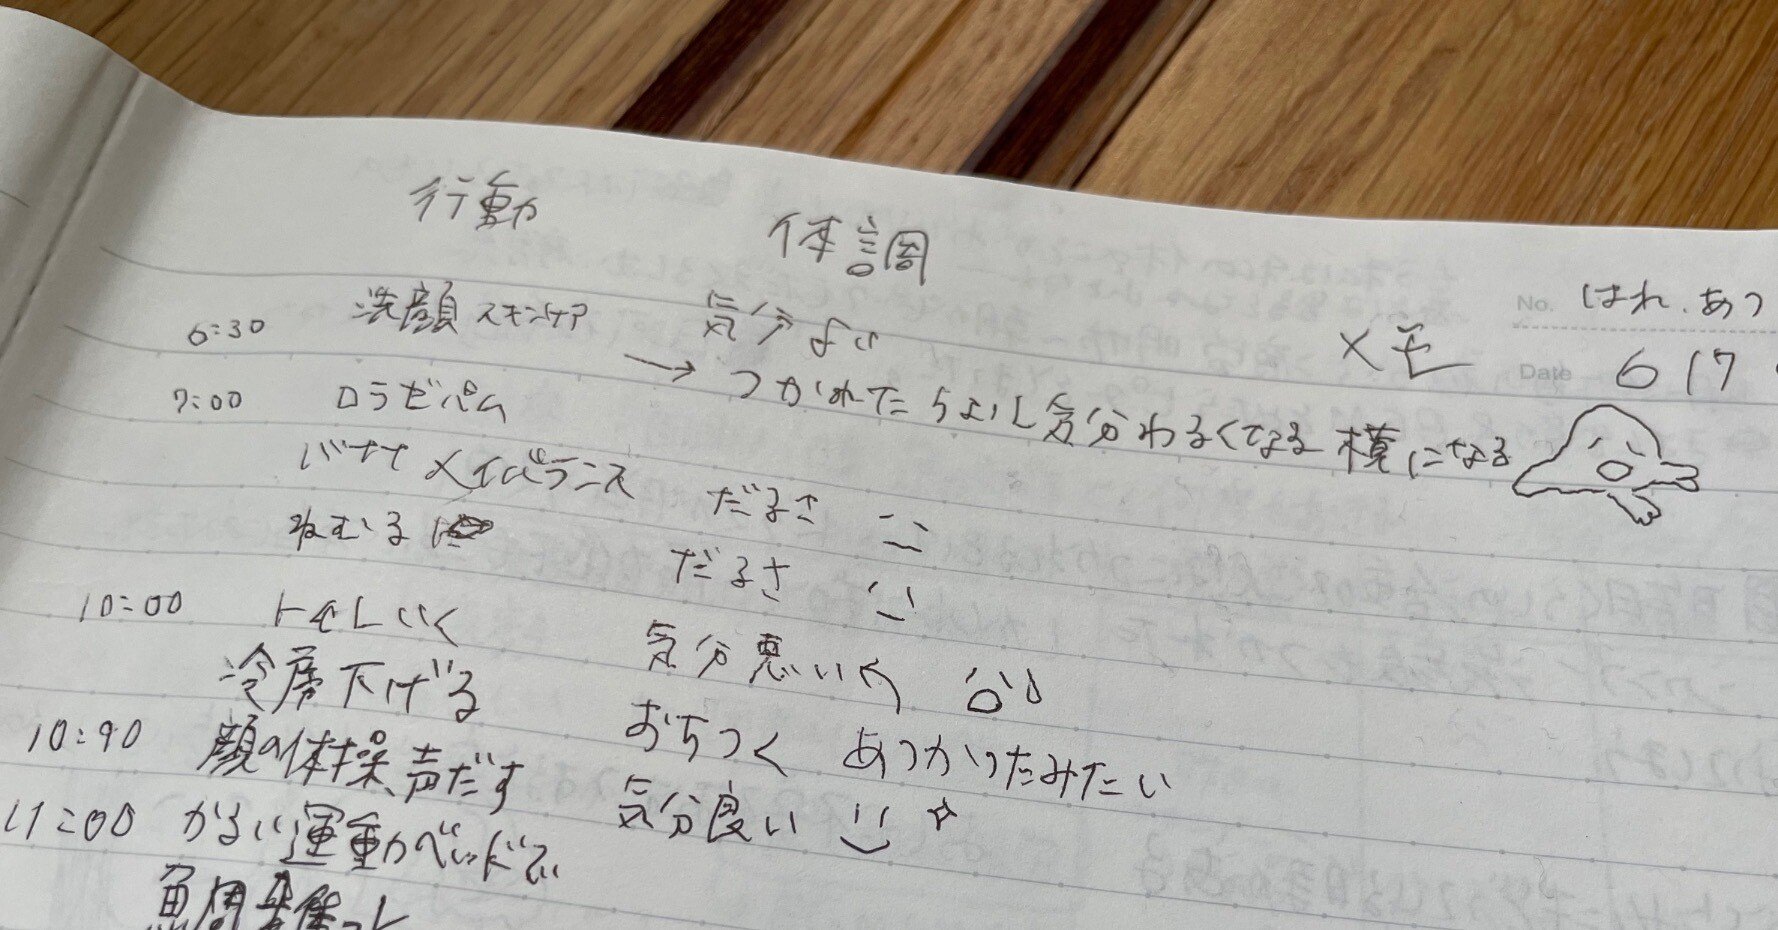 行動 体調
No. はれ、あつ
メモ
Date 6 17
6:30 洗顔 スキンケア 気分よい
→ つかれたらよし気分わるくなる 横になる
7:00 ロラゼパム
バナナ メイバランス だるさ
ねむる だるさ
10:00 トイレいく 気分悪い
冷房下げる おちつく あつかったみたい
10:40 顔の体操、声だす 気分良い ☆
11:00 かるい運動ベッドで